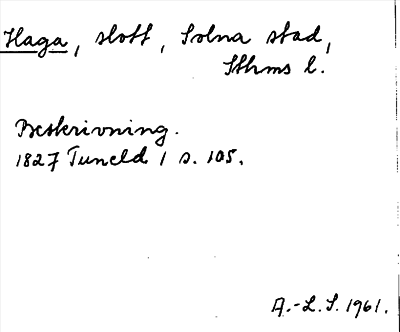 Haga, slott, Solna stad,
Sthms l.
Beskrivning.
1827 Tuneld 1 s. 105.
A.-L.S. 1961.